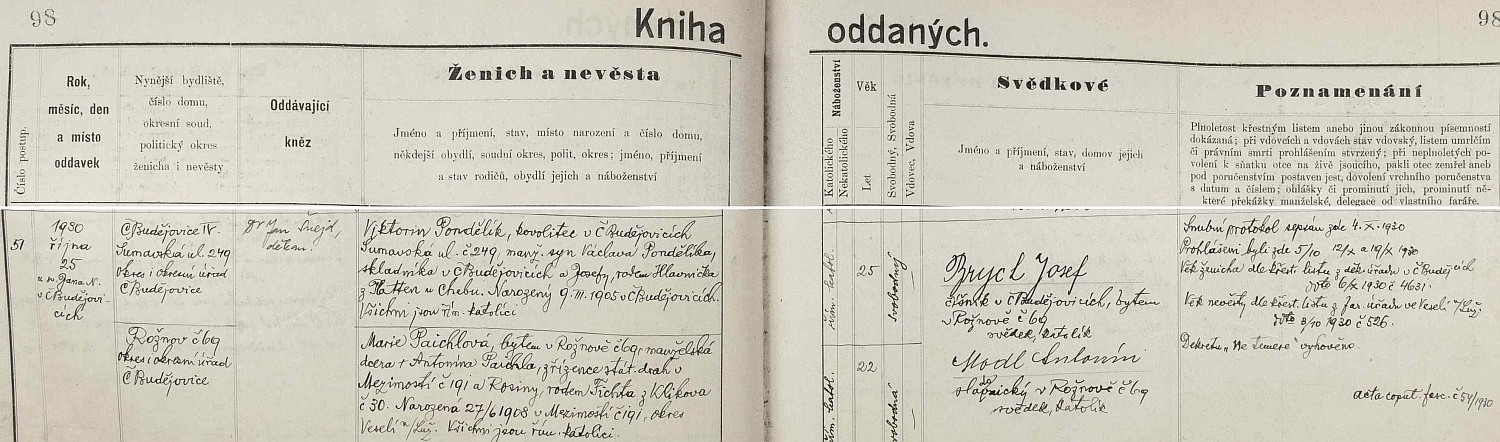 98
Kniha
oddaných.
98
Číslo postup.
Rok,
měsíc, den
a místo
oddavek
Nynější bydliště,
číslo domu,
okresní soud,
politický okres
ženicha i nevěsty
Oddávající
kněz
Ženich a nevěsta
Jméno a příjmení, stav, místo narození a číslo domu,
někdejší obydlí, soudní okres, polit. okres; jméno, příjmení
a stav rodičů, obydlí jejich a náboženství
Náboženství
Katolického
Nekatolického
Věk
Let
Svobodný, Svobodná
Vdovec, Vdova
Svědkové
Jméno a příjmení, stav, domov jejich
a náboženství
Poznamenání
Plnoletost křestným listem anebo jinou zákonnou písemností
dokázaná; při vdovcích a vdovách stav vdovský, listem umrlčím
či právním smrti prohlášením stvrzený; při neplnoletých po-
volení k sňatku otce na živě jsoucího, pakli otec zemřel aneb
pod poručenstvím postaven jest, dovolení vrchního poručenstva
s datum a číslem; ohlášky či prominutí jich, prominutí ně-
které překážky manželské, delegace od vlastního faráře.
51
1930
října
25
u sv. Jana N.
v Č Budějovi-
cích
Č Budějovice IV.
Šumavská ul. 249
okres i okresní úřad
Č Budějovice
Dr Jan
děkan.
Viktorin Pondělík, kovolitec v Č Budějovicích
Šumavská ul. č 249, manž. syn Václava Pondělíka,
skladníka v Č Budějovicích a Josefy, rodem Hlavnička
z Platten u Chebu. Narozený 9. III. 1905 v Č Budějovicích.
Všichni jsou řím. katolíci
řím. katol.
25
svobodný
Brych Josef
číšník v Č Budějovicích, bytem
v Rožnově č 69
svědek, katolík
Snubní protokol sepsán zde 4. X. 1930
Prohlášeni byli zde 5/10 12/X a 19/X 1930
Věk ženicha dle křest. listu z děk. úřadu v Č Budějicích
ddto 6/X 1930 č 4631.
Věk nevěsty dle křest. listu z far. úřadu ve Veselí n/Luž.
ddto 3/10 1930 č 526.
Dekretu "Ne temere" vyhověno.
acta copul. fasc. č 51/1930
Rožnov č 69
okres i okresní úřad
Č Budějovice
Marie Paichlová, bytem v Rožnově č 69, manželská
dcera + Antonína Paichla, zřízence stát. drah v
Mezimostí č 191 a Rosiny, rodem Fichta z Klikova
č 30. Narozená 27/6 1908 v Mezimostí č 191, okres
Veselí n/Luž. Všichni jsou řím. katolíci.
řím. katol.
22
svobodná
Modl Antonín
v Rožnově č 69
svědek, katolík